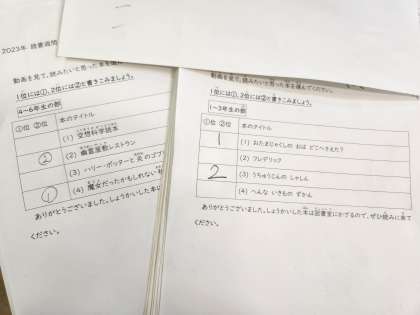 2023年 読書週間
動画を見て、読みたいと思った本を選んで
1位には①、2位には②と書きこみましょう。
4~6年生の部
①位 ②位 本のタイトル
(1) 空想科学読本
② (2) 幽霊屋敷レストラン
(3) ハリー・ポッターと炎のゴブ
① (4) 魔女だったかもしれない
ありがとうございました。しょうかいした本は
ください。
動画を見て、読みたいと思った本を選んでください。
1位には①、2位には②と書きこみましょう。
1~3年生の部
①位 ②位 本のタイトル
1 (1) おたまじゃくしの おは どこへきえた?
(2) フレデリック
2 (3) うちゅうじんの しゃしん
(4) へんな いきもの ずかん
ありがとうございました。しょうかいした本は図書室にかざるので、ぜひ読みに来て
ください。